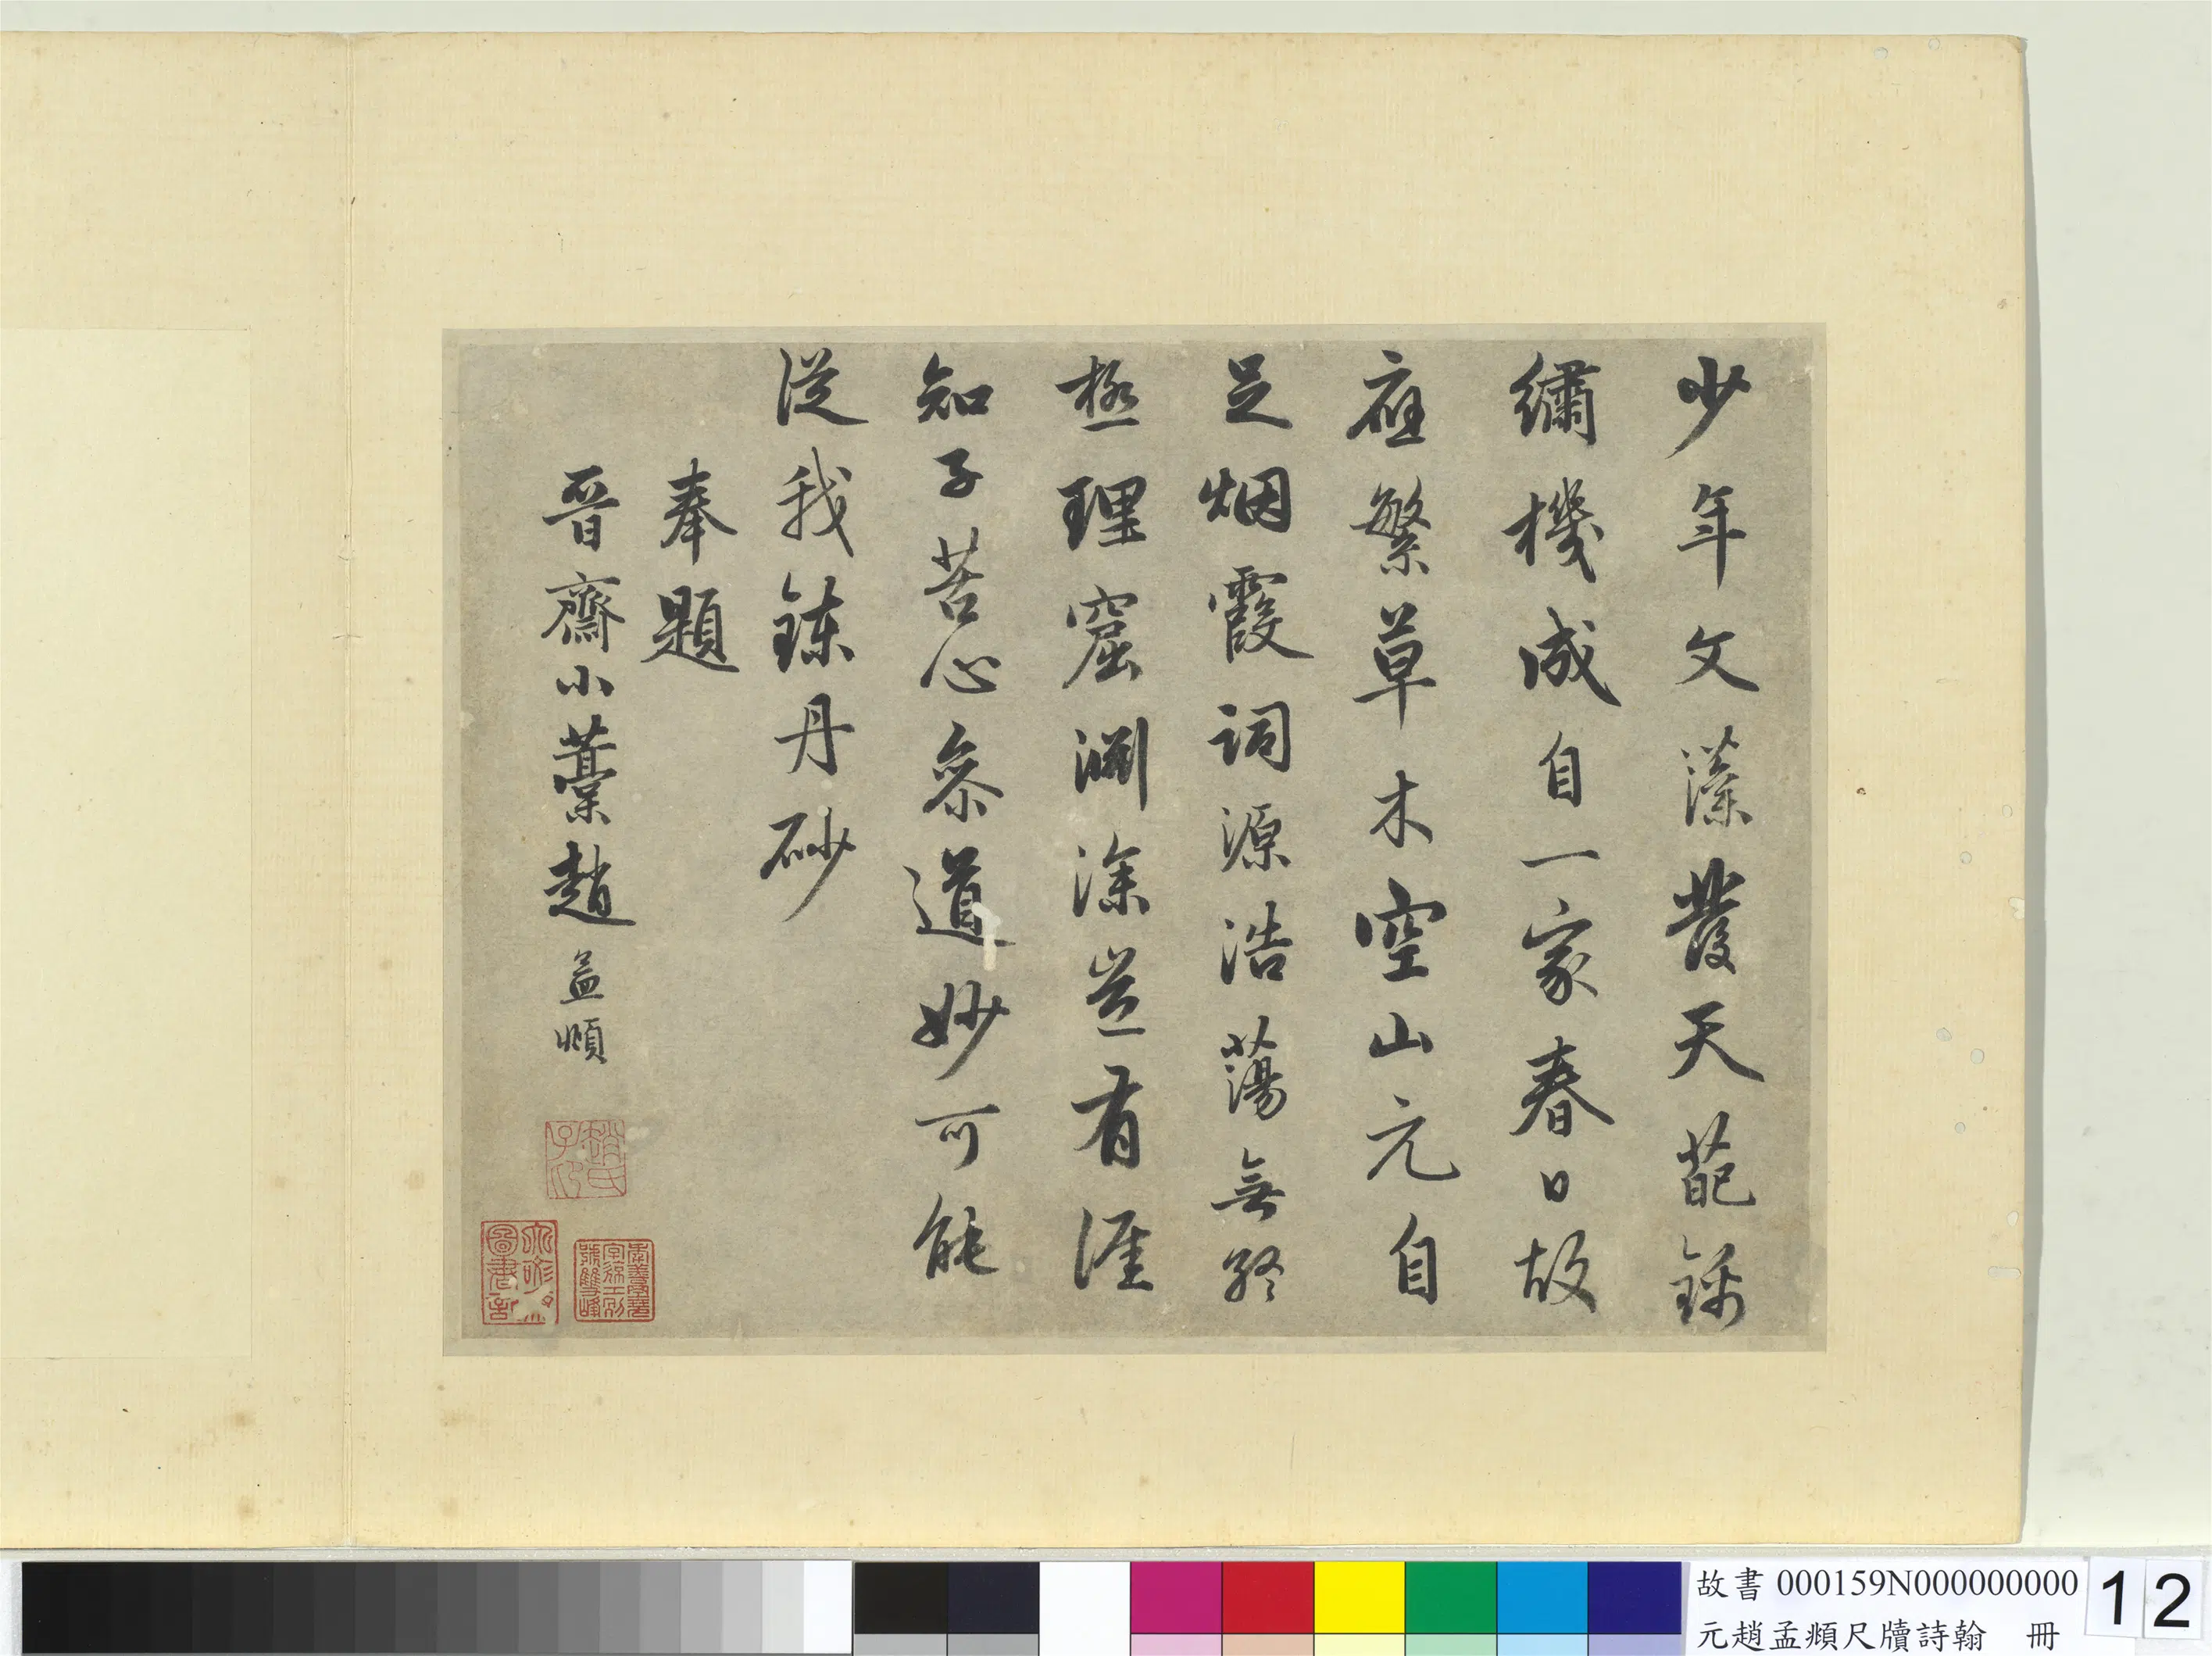 少年文藻發天葩錦
繡機成自一家春日故
應繁草木空山元自
足烟霞詞源浩蕩無終
極理窟淵深豈有涯
知子苦心參道妙可能
從我鍊丹砂
奉題
晉齋小藁趙孟頫
趙氏子昂
號雙峰
圖書記
故書 000159N000000000
元趙孟頫尺牘詩翰 冊
12